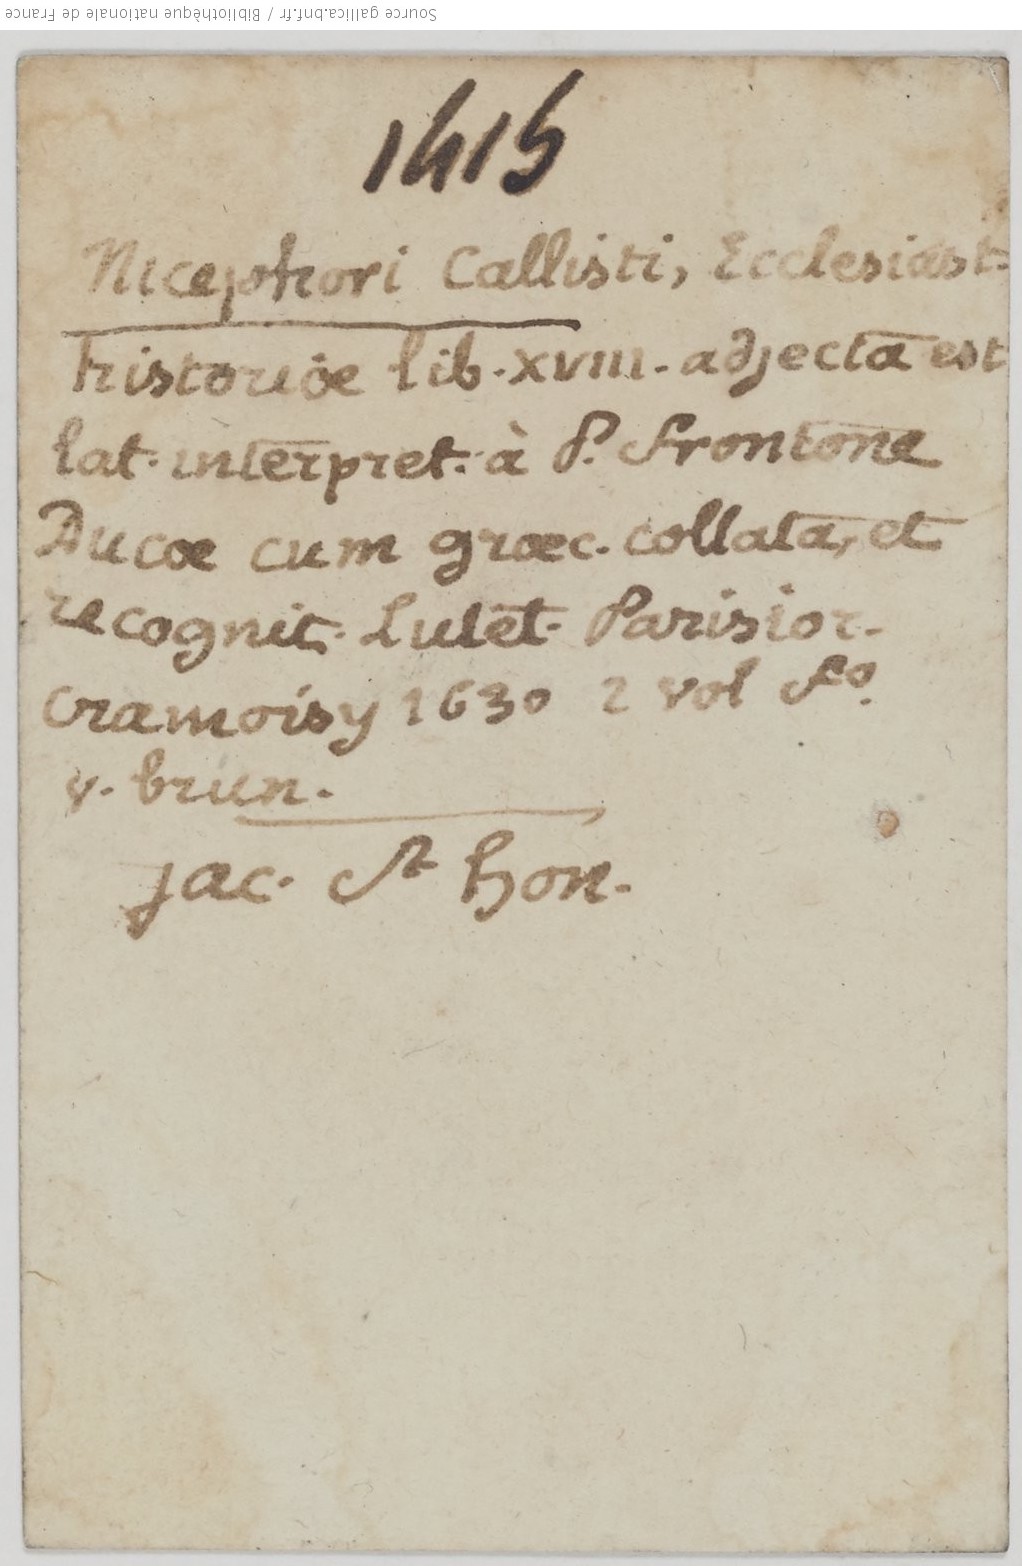 Source gallica.bnf.fr / Bibliothèque nationale de France
1415
Nicephori Callisti, Ecclesiast.
historiæ lib. XVIII. adjecta est
lat. interpret. à P. Frontone
Ducæ cum græc. collata, et
recognit. Lutet. Parisior.
Cramoisy 1630 2 vol fo.
v. brun.
jac. St hon.